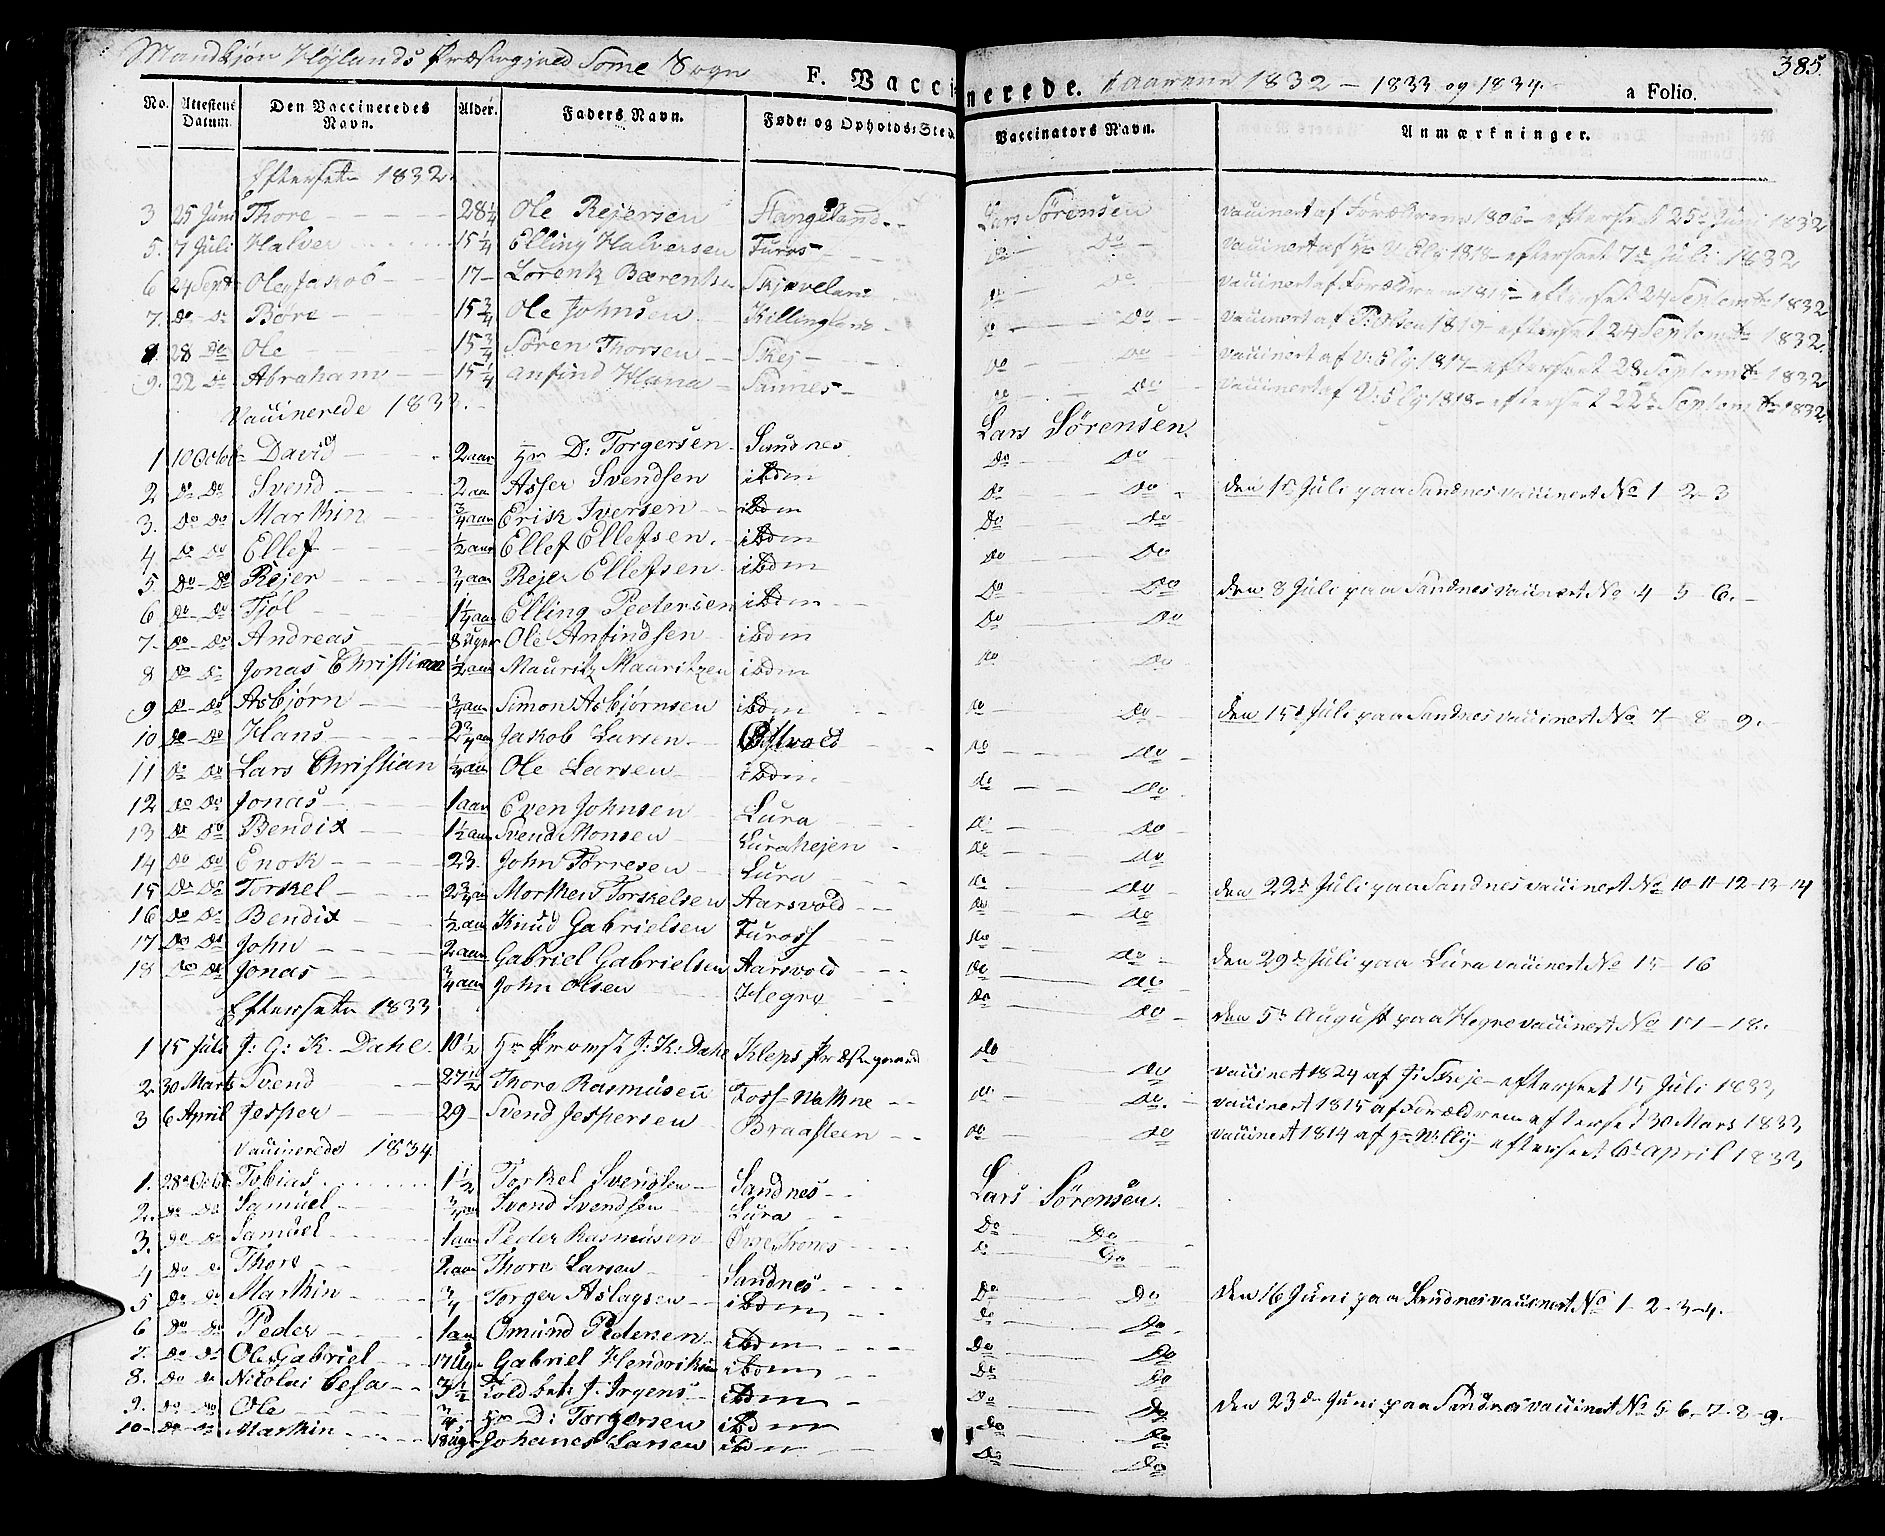 Mandkjøn Høylands Præstegjeld Some Sogn
F. Vaccinerede. i aarene 1832 – 1833 og 1834.
a Folio.
385.
No. | Attestens Datum. | Den Vaccineredes Navn. | Alder. | Faders Navn. | Føde- og Opholds-Sted. | Vaccinators Navn. | Anmærkninger.
Efterseete 1832.
3 | 25 Juni | Thore | 28 1/4 | Ole Rejersen | Stangeland | Lars Sørensen | vaccinert af Forældrene 1806 efterseet 25de Juni 1832
5. | 7 Juli | Halver | 15 1/4 | Elling Halversen | Furas | do Do | vaccinert af Hr V: Ely 1818 efterseet 7de Juli 1832
6 | 24 Sept | Ole Jakob | 17 | Lorentz Bærentsen | Skjæveland | do Do | vaccinert af Forældrene 1815 efterseet 24 Septembr 1832
7. | Do Do | Børe | 15 3/4 | Ole Johnsen | Killingland | do Do | vaccinert af P: Olsen 1819 efterseet 24 Septembr 1832
8. | 28 Do | Ole | 15 3/4 | Søren Thorsen | Skej | do Do | vaccinert af V: Ely 1817 efterseet 28 Septembr 1832
9. | 22 Do | Abraham | 15 1/4 | Anfind Hana | Sannes | do Do | vaccinert af V: Ely 1818 efterseet 22de Septembr 1832
Vaccinerede 1832.
Lars Sørensen.
1 | 10 Octob | David | 2 aar | Hr D: Torgersen | Sandnes | Do Do
2 | Do Do | Svend | 2 aar | Asser Svendsen | ibdm | Do Do | den 1st Juli paa Sandnes vaccinert No 1-2-3
3. | Do Do | Marthin | 3/4 aar | Erik Iversen | ibdm | Do Do
4 | Do Do | Ellef | 1/2 aar | Ellef Ellefsen. | ibdm | Do Do
5. | Do Do | Rejer | 3/4 aar | Rejer Ellefsen | ibdm | Do Do | den 8 Juli paa Sandnes vaccinert No 4-5-6.
6. | Do Do | Tjøl | 1 1/4 aar | Elling Pedersen | ibdm | Do Do
7. | Do Do | Andreas | 8 uger | Ole Anfindsen | ibdm | Do Do
8 | Do Do | Jonas Christian | 1/2 aar | Mauritz Mauritzen | ibdm
9 | Do Do | Asbjørn | 3/4 aar | Simon Asbjørnsen | ibdm | Do Do | den 15de Juli paa Sandnes vaccinert No 7-8-9.
10 | Do Do | Hans | 2 3/4 aar | Jakob Larsen | Østvold | Do Do
11 | Do Do | Lars Christian | 1/4 aar | Ole Larsen | ibdm | Do Do
12 | Do Do | Jonas | 1 aar | Even Johnsen | Lura
13 | Do Do | Bendix | 1 1/2 aar | Svend Monsen | Lurahejen | Do Do
14 | Do Do | Enok | 23. | John Torresen | Lura | Do Do
15 | Do Do | Torkel | 2 3/4 | Morthen Torkelsen | Aarsvold | Do Do | den 22de Juli paa Sandnes vaccinert No 10-11-12-13-14
16 | Do Do | Bendix | 1/2 aar | Knud Gabrielsen | Fuross | Do Do
17 | Do Do | John | 2 aar | Gabriel Gabrielsen | Aarsvold | Do Do | den 29de Juli paa Lura vaccinert No 15-16
18 | Do Do | Jonas | 3/4 aar | John Olsen | Hegre | Do Do
Efterseete 1833
Do Do | den 5te August paa Hegre vaccinert No 17-18.
1 | 15 Juli | J: G: K. Dahl. | 10 1/2 | Hr Provst J: K: Dahl | Kleps Præstegaard | Do Do | vaccinert 1824 af J: Skeje efterseet 15 Juli 1833
2 | 30 Marts | Svend | 27 1/2 | Thore Rasmusen | Foss Vathne | Do Do. | vaccinert 1815 af Forældrene efterseet 30 Mars 1833
3 | 6 April | Jesper | 29 | Svend Jespersen | Braasteen | Do Do | vaccinert 1814 af Hr V: Ely efterseet 6te April 1833
Vaccinerede 1834.
1. | 28de Octbr | Tobias | 1 1/2 | Torkel Svendsen | Sandnes | Lars Sørensen.
2. | Do Do | Samuel | 3/4 aar | Svend Svendsen | Lura | Do Do
3. | Do Do | Samuel | 1 aar | Peder Rasmusen | Øvre Trones | Do Do
4 | Do Do | Thore | 2 aar | Thore Larsen | Sandnes | Do Do | den 16 Juni paa Sandnes vaccinert No 1-2-3-4.
5 | Do Do | Marthin | 3/4 | Torger Aslagsen | ibdm | Do Do.
6 | Do Do | Peder | 1 aar | Omund Pedersen | ibdm | Do Do
7. | Do Do | Ole Gabriel | 17 Ug. | Gabriel Hendriksen | ibdm | Do Do
8. | Do Do | Nicolai Cesa | 3 1/2 | Toldbetj J: Irgens | ibdm | Do Do | den 23de Juni paa Sandnes vaccinert No 5-6-7-8-9.
9. | Do Do | Ole | 3/4 | Hr D: Torgersen | ibdm | Do Do
10 | Do Do | Marthin | 18 ug. | Johanes Larsen | ibdm | Do Do